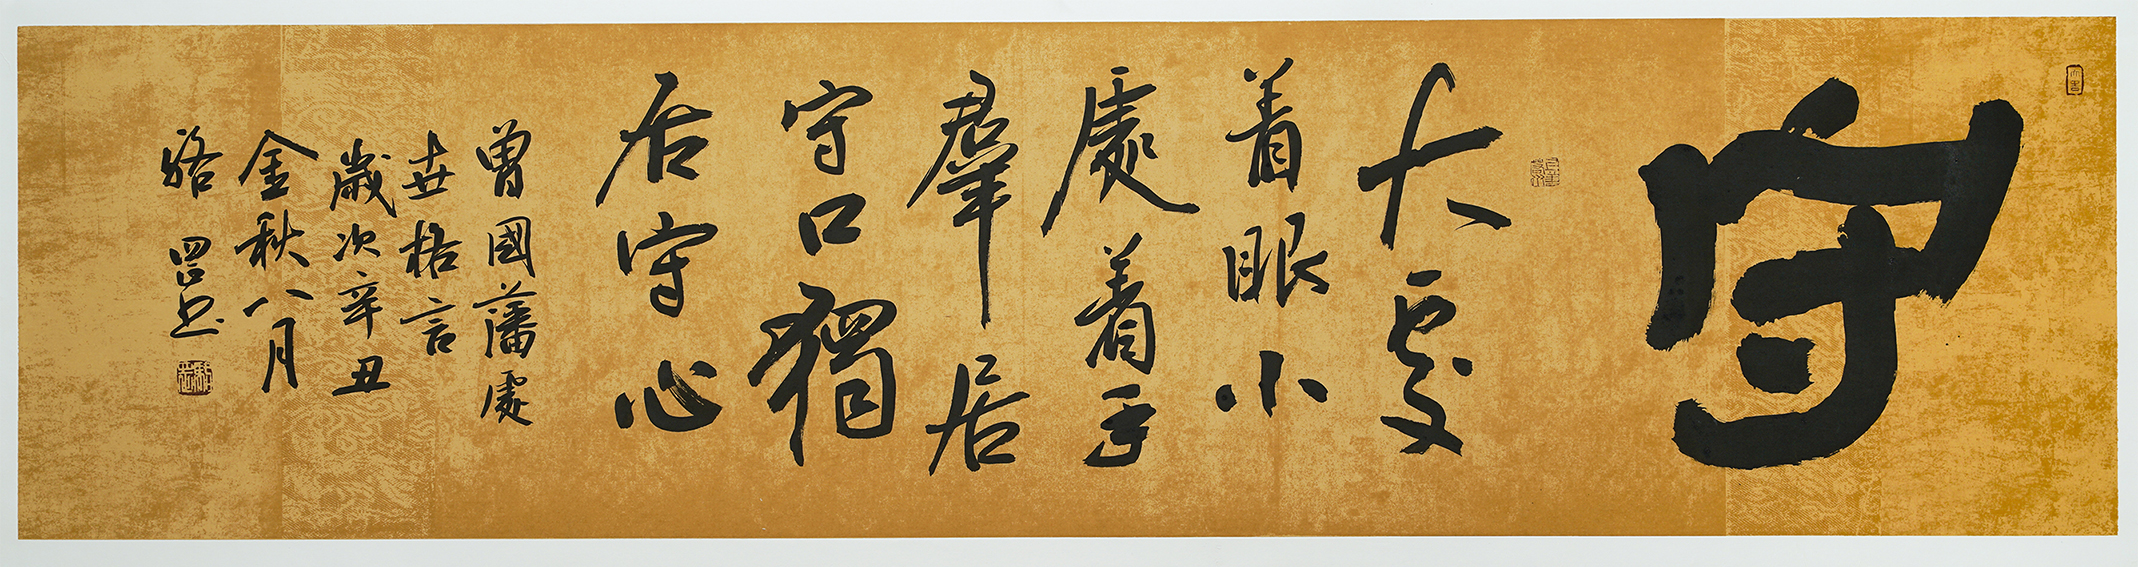 守
大處
着眼小
處着手
羣居
守口獨
居守心
曾國藩處
世格言
歲次辛丑
金秋八月
骆